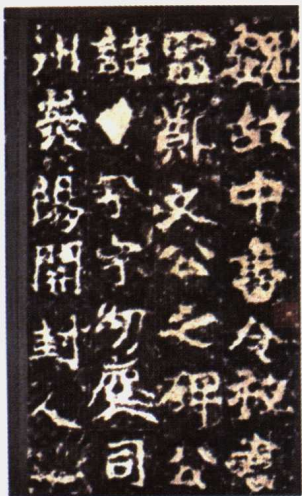 魏故中書令秘書
監鄭文公之碑公
諱羲字幼麟司
州熒陽開封人也